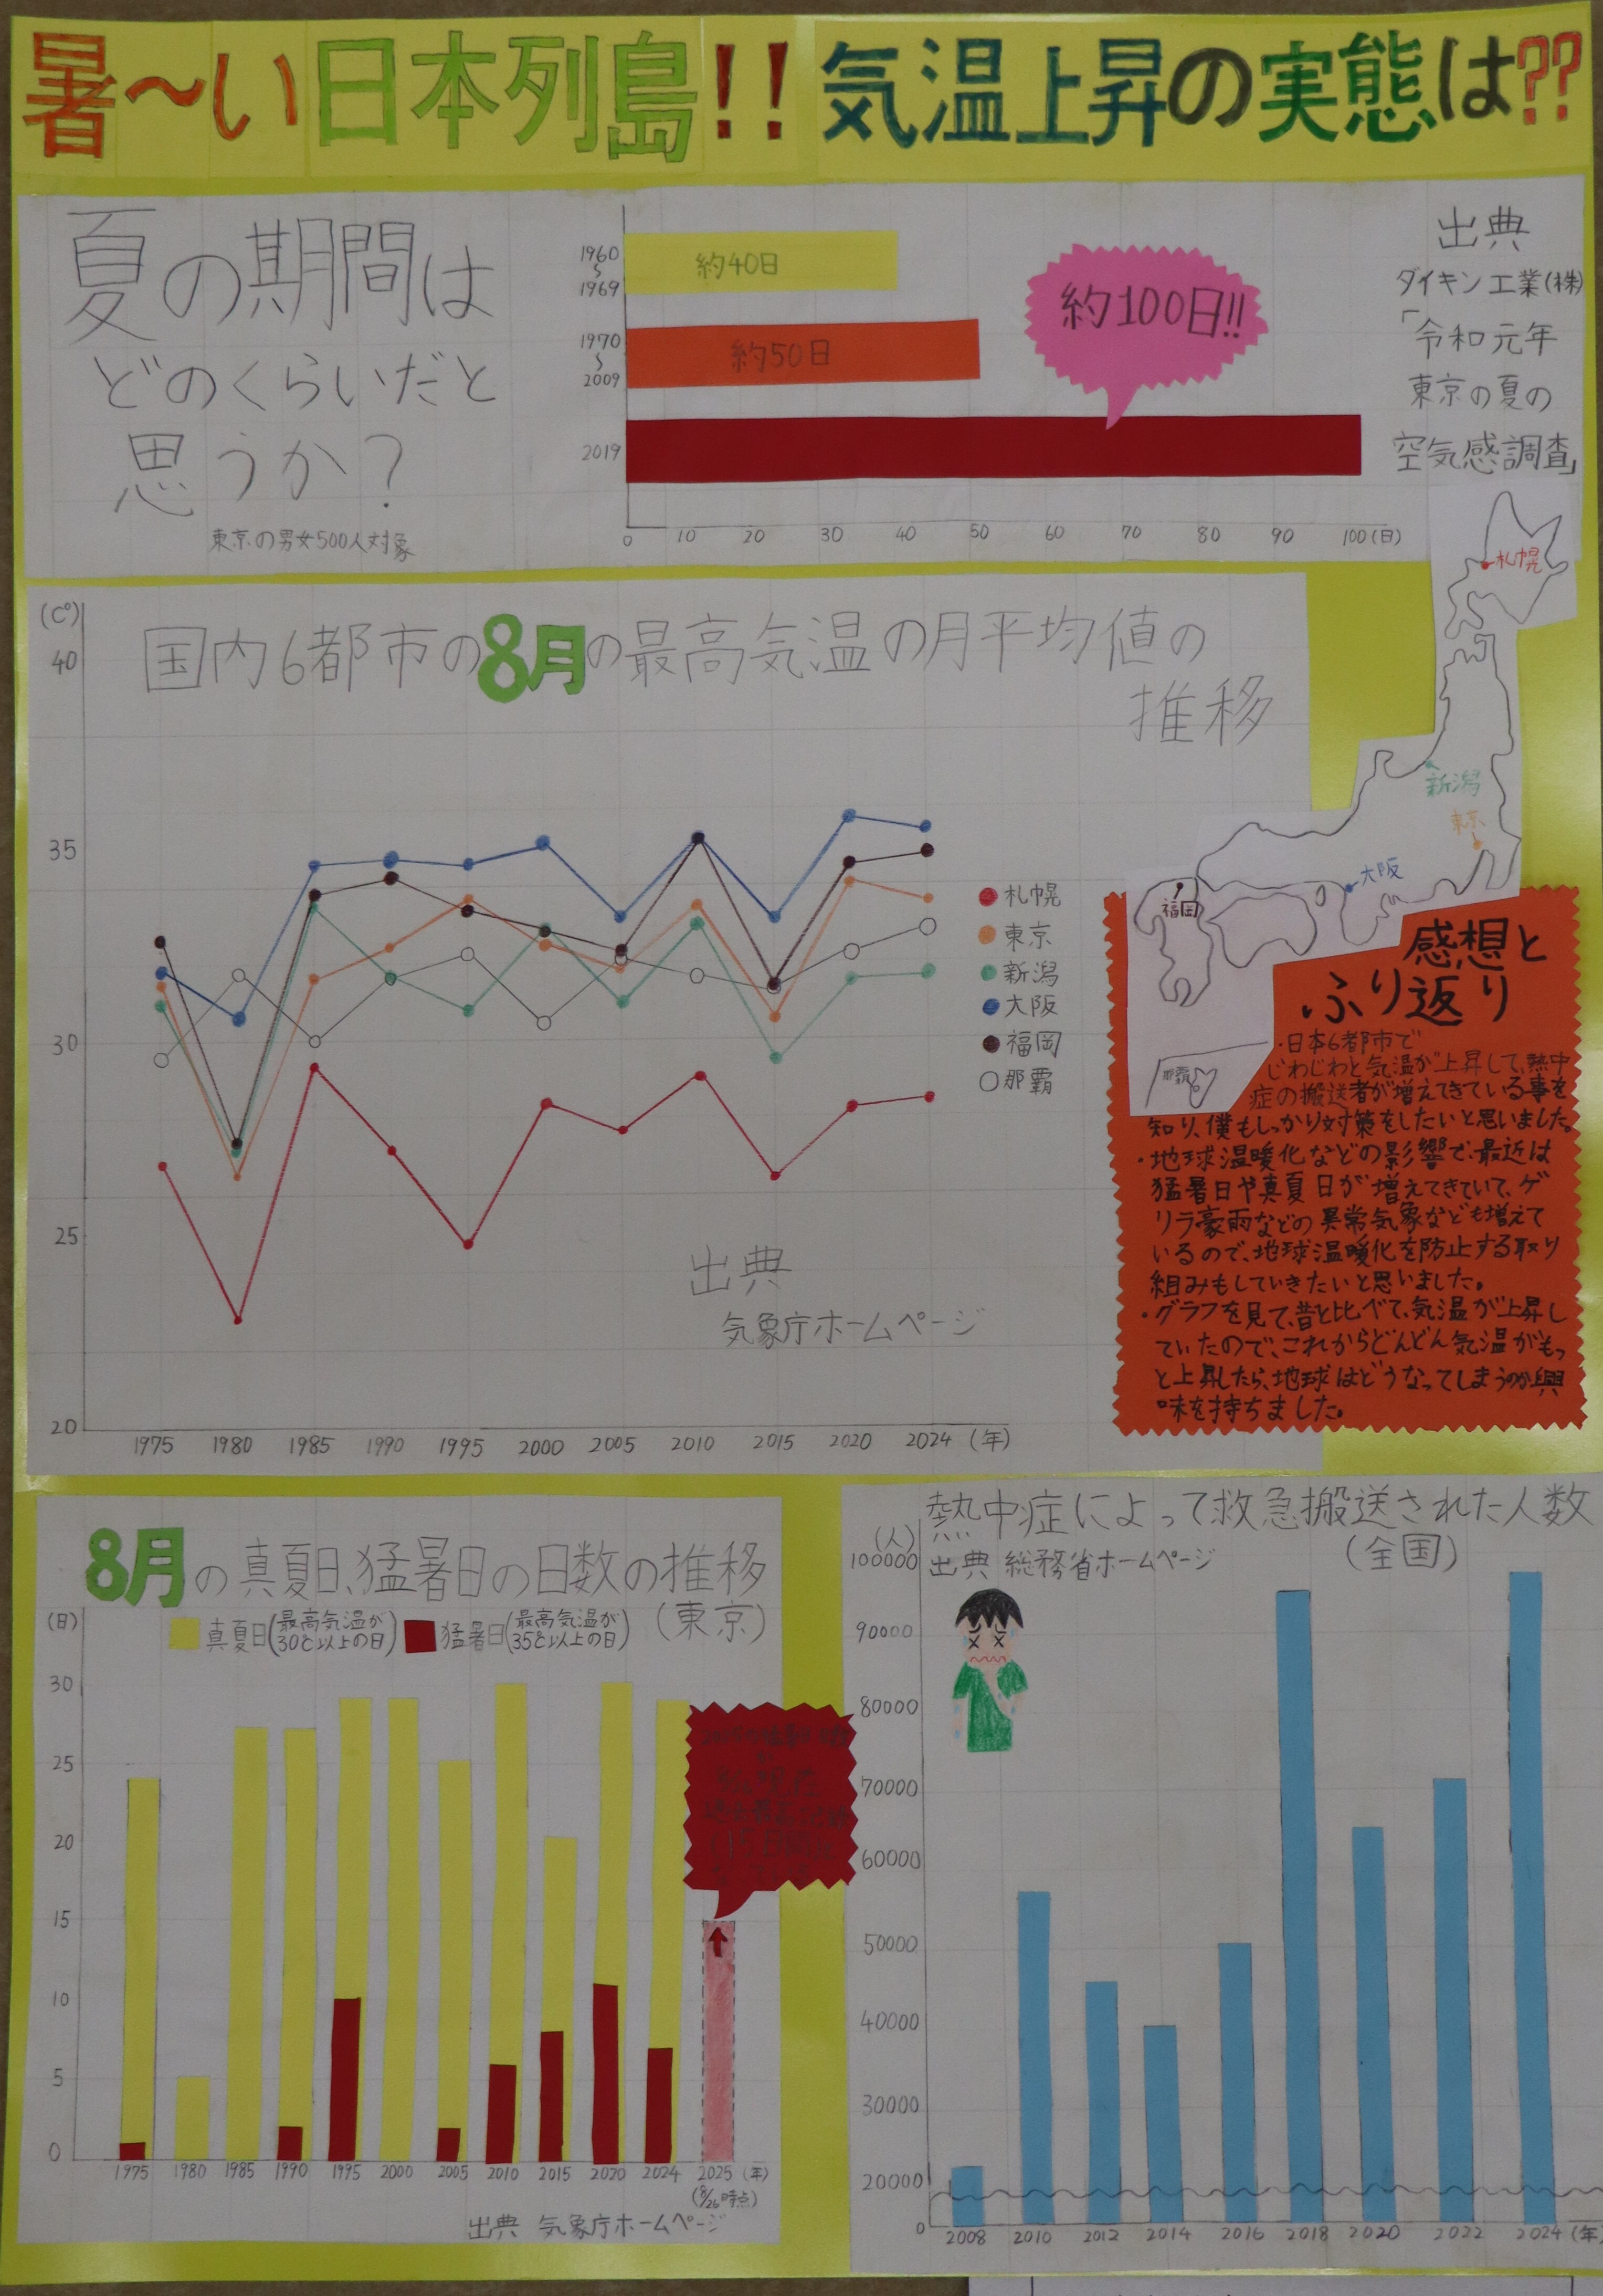 暑〜い日本列島!! 気温上昇の実態は??
夏の期間は
どのくらいだと
思うか?
東京の男女500人対象
1960
〜
1969
約40日
1970
〜
2009
約50日
2019
約100日!!
0 10 20 30 40 50 60 70 80 90 100(日)
出典
ダイキン工業(株)
「令和元年
東京の夏の
空気感調査」
国内6都市の8月の最高気温の月平均値の
推移
(C°)
40
35
30
25
20
1975 1980 1985 1990 1995 2000 2005 2010 2015 2020 2024 (年)
札幌
東京
新潟
大阪
福岡
那覇
出典
気象庁ホームページ
札幌
新潟
東京
大阪
福岡
那覇
感想と
ふり返り
・日本6都市で
じわじわと気温が上昇して、熱中
症の搬送者が増えてきている事を
知り、僕もしっかり対策をしたいと思いました。
・地球温暖化などの影響で、最近は
猛暑日や真夏日が増えてきていて、ゲ
リラ豪雨などの異常気象なども増えて
いるので、地球温暖化を防止する取り
組みもしていきたいと思いました。
・グラフを見て、昔と比べて、気温が上昇し
ていたので、これからどんどん気温がもっ
と上昇したら、地球はどうなってしまうのか興
味を持ちました。
8月の真夏日、猛暑日の日数の推移
(東京)
(日)
真夏日(最高気温が30℃以上の日) 猛暑日(最高気温が35℃以上の日)
30
25
20
15
10
5
0
1975 1980 1985 1990 1995 2000 2005 2010 2015 2020 2024 2025 (年)
(8/26時点)
出典 気象庁ホームページ
熱中症によって救急搬送された人数
(全国)
出典 総務省ホームページ
(人)
100000
90000
80000
70000
60000
50000
40000
30000
20000
0
2008 2010 2012 2014 2016 2018 2020 2022 2024 (年)